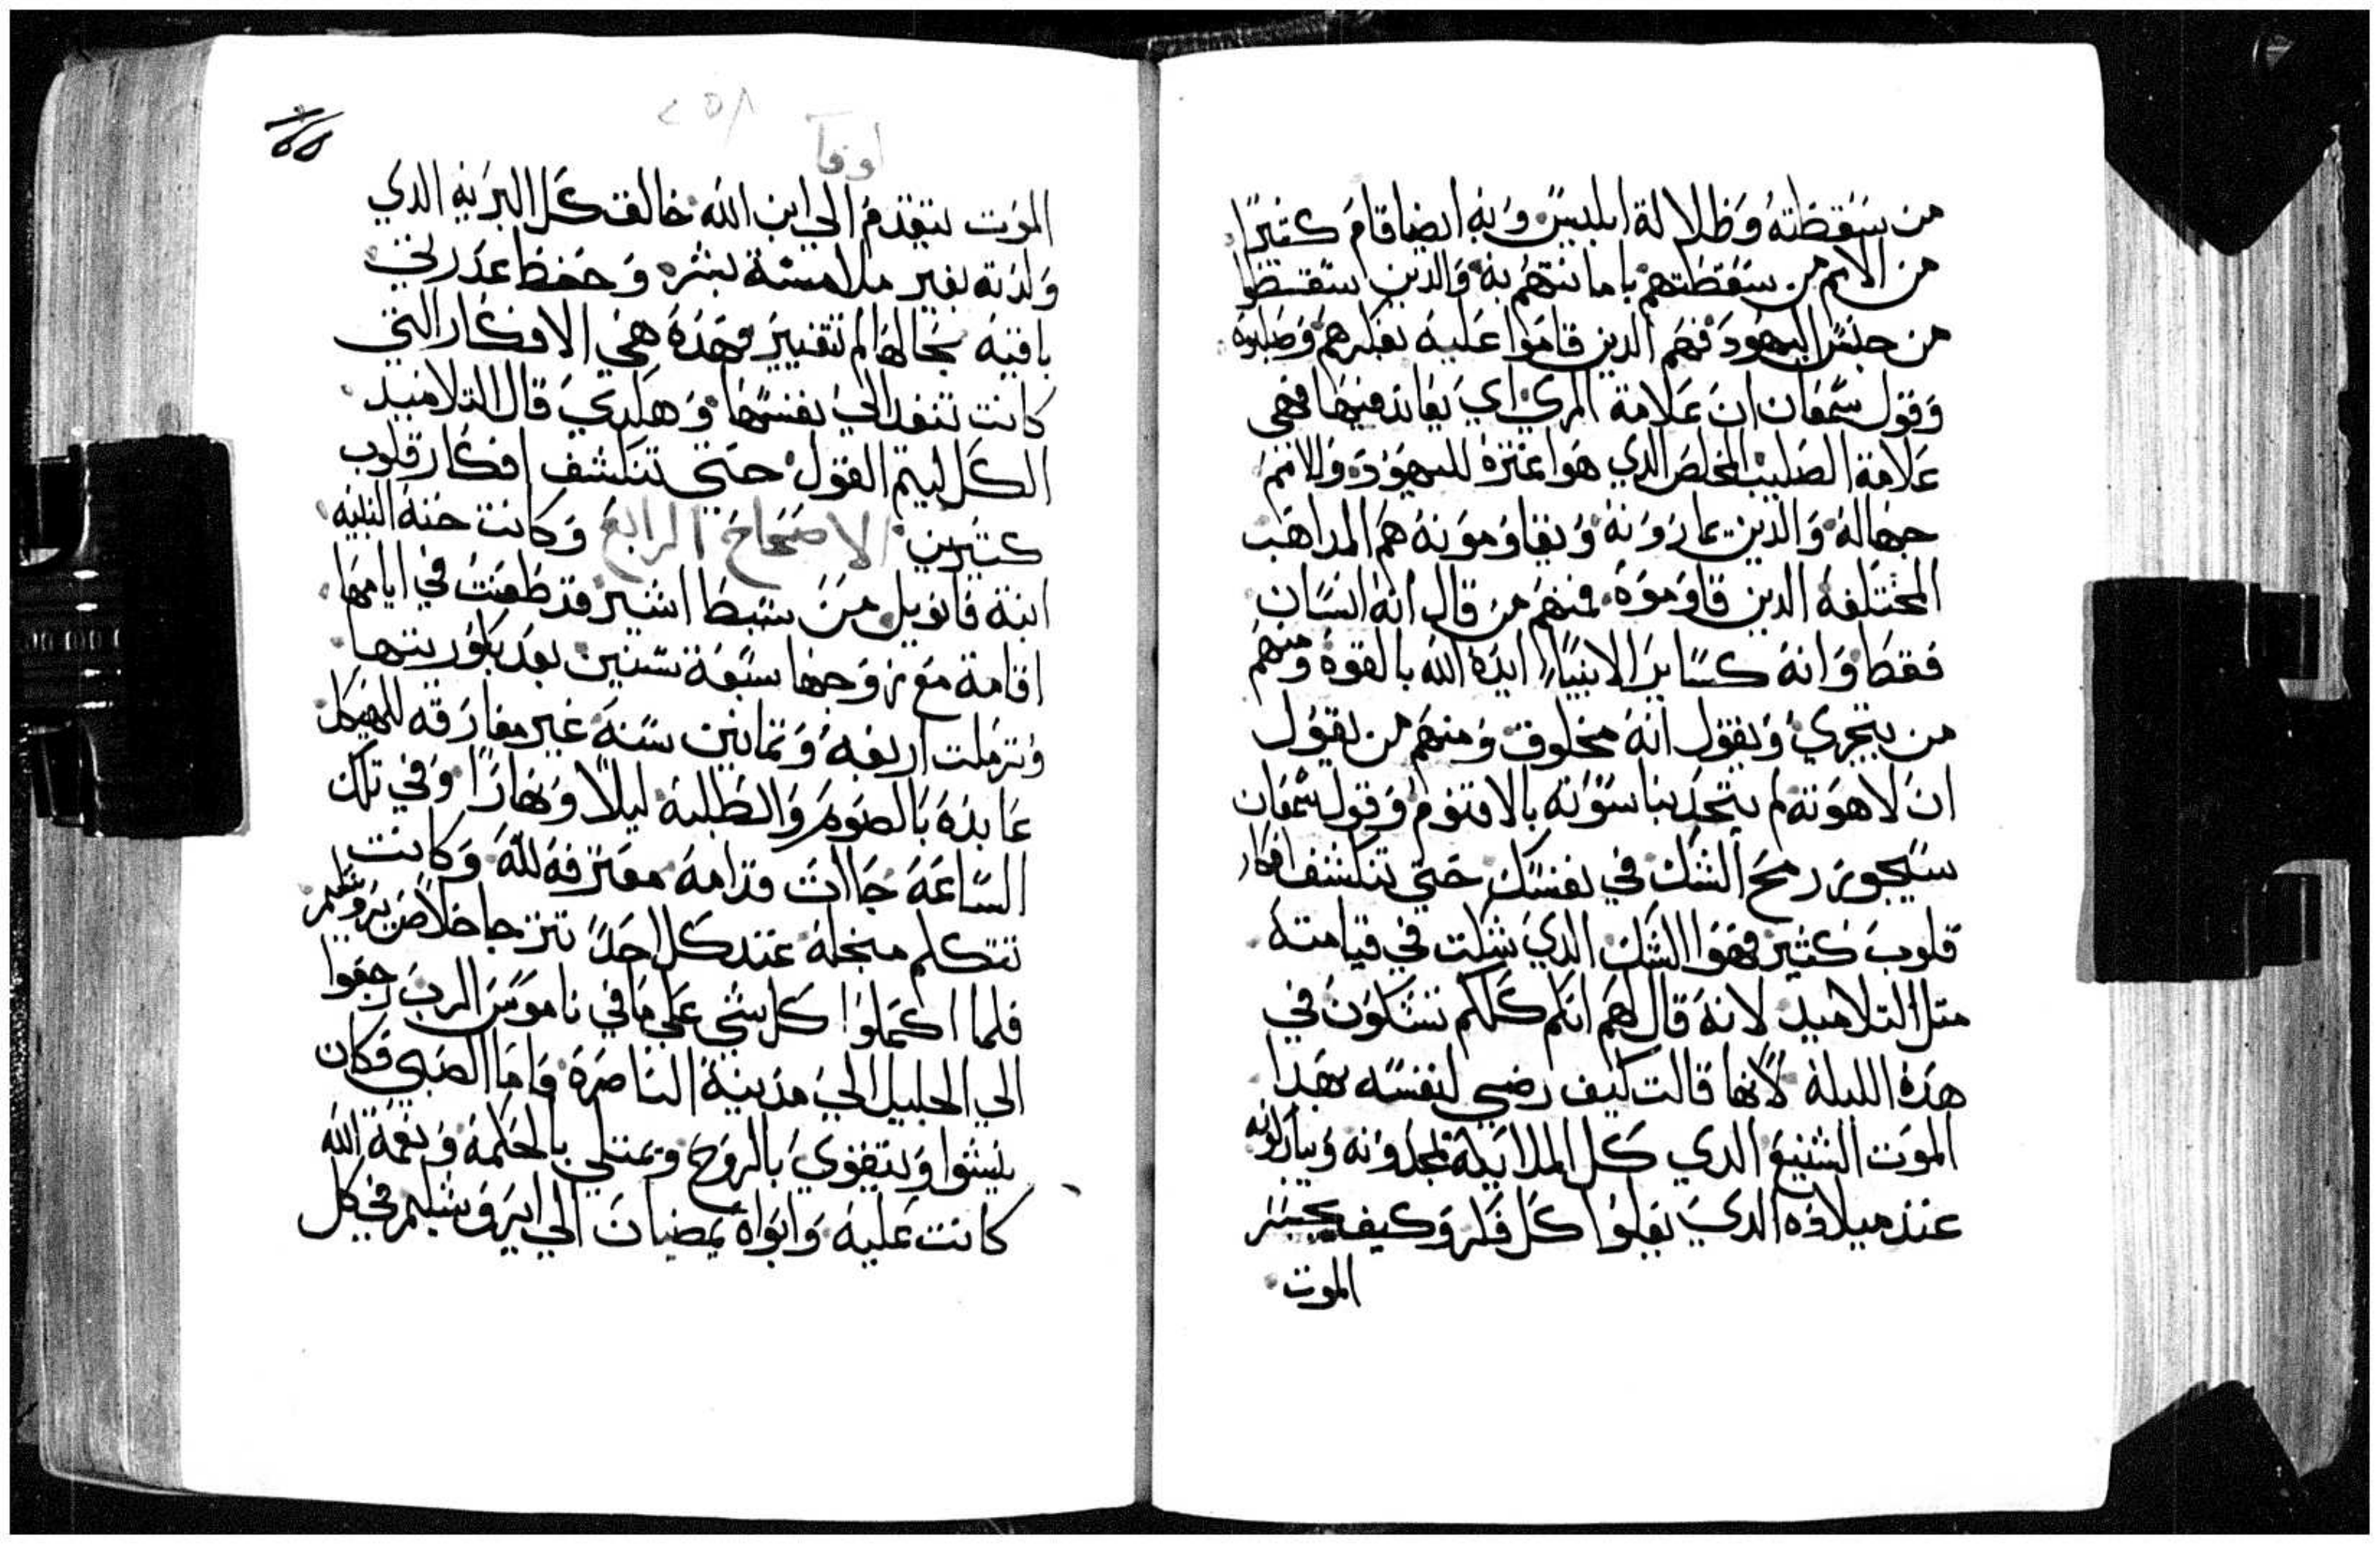 من سقطته وظلالة ابليس وبه ايضا قام كثيرا
من الامم من سقطتهم باماينتهم به والدين سقطوا
من جنس اليهود فهم الدين قاموا عليه بفكرهم وصلبوه
وقول سمعان ان علامة المري اي يعاند فيها فهي
علامة الصليب المخلص الدي هوا عثرة لليهود وللامم
جهالة والدين يماروته ويقاومونه هم المداهب
المختلفة الدين قاوموه فمنهم من قال انه انسان
فقط وانه كساير الانبيا ايده الله بالقوة ومنهم
من يتجري ويقول انه مخلوق ومنهم من يقول
ان لاهوته لم يتحد بناسوته بالاقنوم وقول سمعان
سيجوز رمح الشك في نفسك حتي تنكشف افكار
قلوب كثير فهوا الشك الدي شكت في قيامته
متل التلاميد لانه قال لهم انكم كلكم تشكون في
هده الليلة لانها قالت كيف رضي لنفسه بهدا
الموت الشنيع الدي كل الملايكة تمجدونه ويباركونه
عند ميلاده الدي يعلوا كل فكر وكيف يجسر
الموت
٢٥٨
لوقا
الموت يتقدم الي ابن الله خالق كل البرية الدي
ولدته بغير ملامسة بشر وحفظ عدرتي
باقية بحالها لم تتغيير فهده هي الافكار التي
كانت تنفد الي نفسها وهكدي قال التلاميد
الكل ليتم القول حتي تنكشف افكار قلوب
كثيرين الاصحاح الرابع وكانت حنة النبية
ابنة فانويل من سبط اشير قد طعنت في ايامها
اقامة مع زوجها سبعة سنين بعد بكوريتها
وترملت اربعة وتمانين سنة غير مفارقه للهيكل
عابدة بالصوم والطلبة ليلا ونهارا وفي تلك
الساعة جاات قدامه معترفة لله وكانت
تتكلم منجله عند كل احد تترجا خلاص يروشليم
فلما اكملوا كل شي علي ما في ناموس الرب رجعوا
الي الجليل الي مدينة الناصرة واما الصبي فكان
ينشوا ويتقوي بالروح ويمتلي بالحكمة ونعمة الله
كانت عليه وابواه يمضيان الي ايروشليم في كل